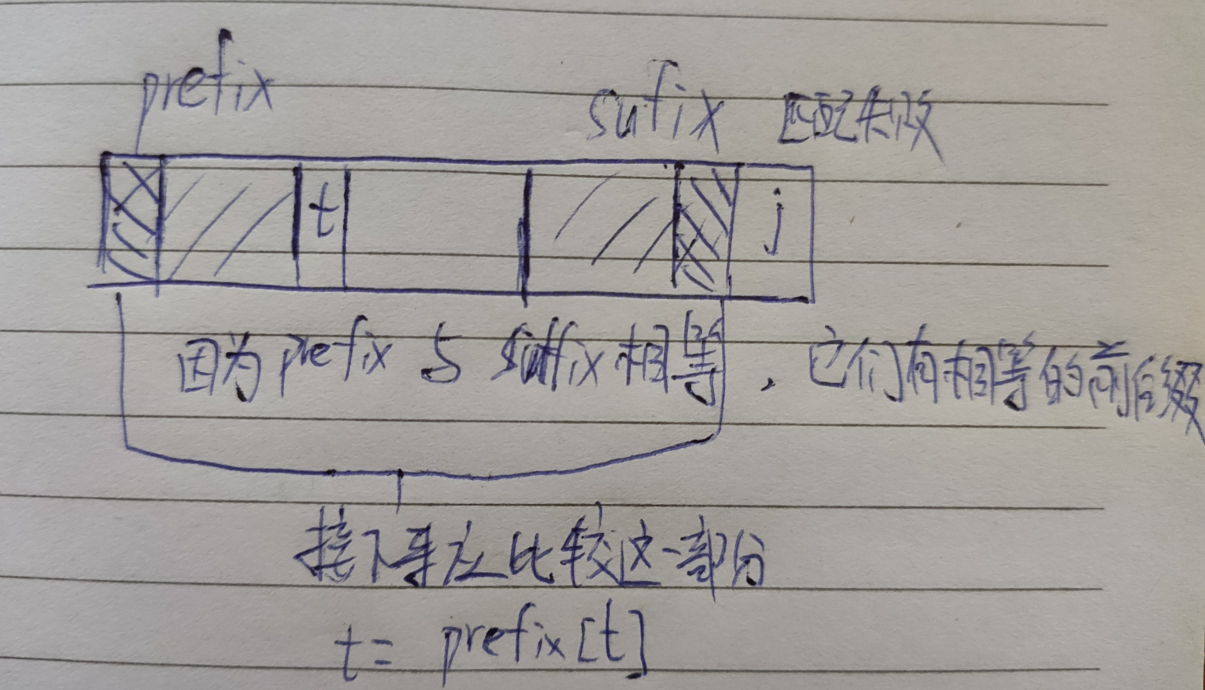 prefix
sufix 匹配失败
t j
因为prefix与suffix相等，它们有相等的前后缀
接下来应比较这一部分
t= prefix[t]